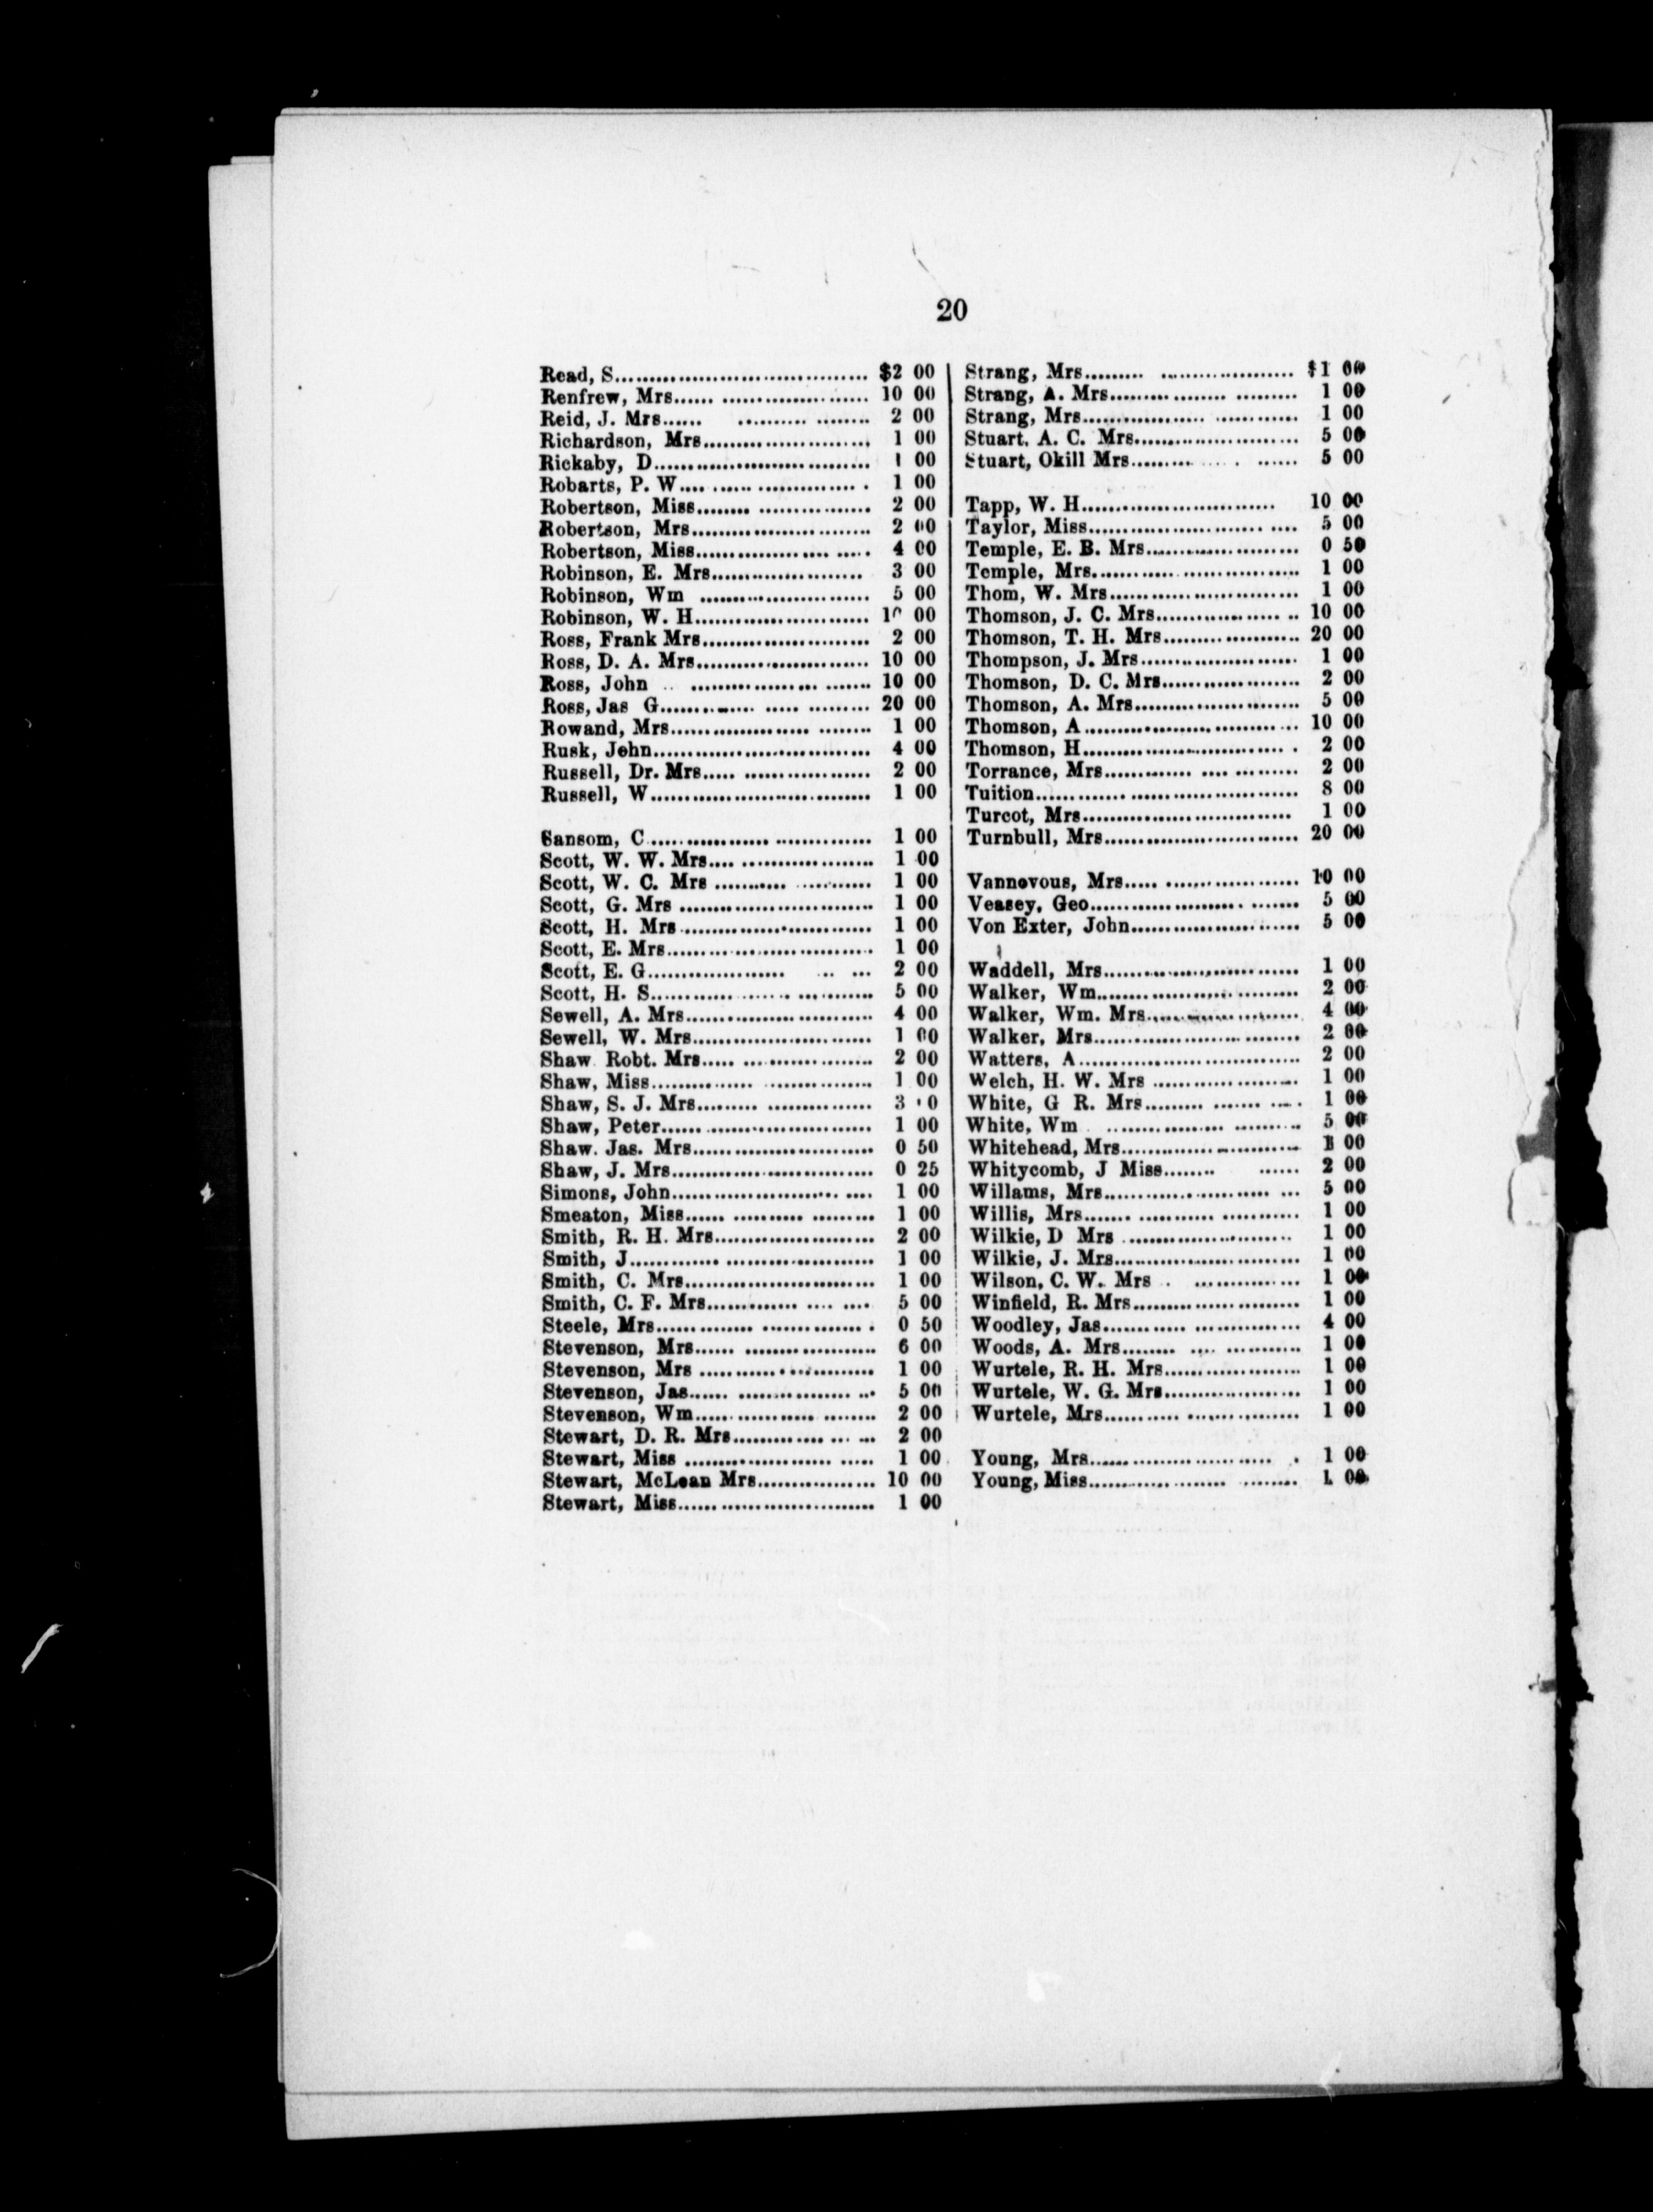 20
Read, S.......... $2 00
Renfrew, Mrs.......... 10 00
Reid, J. Mrs.......... 2 00
Richardson, Mrs.......... 1 00
Rickaby, D.......... 1 00
Robarts, P. W.......... 1 00
Robertson, Miss.......... 2 00
Robertson, Mrs.......... 2 00
Robertson, Miss.......... 4 00
Robinson, E. Mrs.......... 3 00
Robinson, Wm .......... 5 00
Robinson, W. H.......... 10 00
Ross, Frank Mrs.......... 2 00
Ross, D. A. Mrs.......... 10 00
Ross, John .......... 10 00
Ross, Jas G.......... 20 00
Rowand, Mrs.......... 1 00
Rusk, John.......... 4 00
Russell, Dr. Mrs.......... 2 00
Russell, W.......... 1 00
Sansom, C.......... 1 00
Scott, W. W. Mrs.......... 1 00
Scott, W. C. Mrs .......... 1 00
Scott, G. Mrs .......... 1 00
Scott, H. Mrs.......... 1 00
Scott, E. Mrs.......... 1 00
Scott, E. G.......... 2 00
Scott, H. S.......... 5 00
Sewell, A. Mrs.......... 4 00
Sewell, W. Mrs.......... 1 00
Shaw Robt. Mrs.......... 2 00
Shaw, Miss.......... 1 00
Shaw, S. J. Mrs.......... 3 00
Shaw, Peter.......... 1 00
Shaw. Jas. Mrs.......... 0 50
Shaw, J. Mrs.......... 0 25
Simons, John.......... 1 00
Smeaton, Miss.......... 1 00
Smith, R. H. Mrs.......... 2 00
Smith, J.......... 1 00
Smith, C. Mrs.......... 1 00
Smith, C. F. Mrs.......... 5 00
Steele, Mrs.......... 0 50
Stevenson, Mrs.......... 6 00
Stevenson, Mrs .......... 1 00
Stevenson, Jas.......... 5 00
Stevenson, Wm.......... 2 00
Stewart, D. R. Mrs.......... 2 00
Stewart, Miss .......... 1 00
Stewart, McLean Mrs.......... 10 00
Stewart, Miss.......... 1 00
Strang, Mrs.......... $1 00
Strang, A. Mrs.......... 1 00
Strang, Mrs.......... 1 00
Stuart. A. C. Mrs.......... 5 00
Stuart, Okill Mrs.......... 5 00
Tapp, W. H.......... 10 00
Taylor, Miss.......... 5 00
Temple, E. B. Mrs.......... 0 50
Temple, Mrs.......... 1 00
Thom, W. Mrs.......... 1 00
Thomson, J. C. Mrs.......... 10 00
Thomson, T. H. Mrs.......... 20 00
Thompson, J. Mrs.......... 1 00
Thomson, D. C. Mrs.......... 2 00
Thomson, A. Mrs.......... 5 00
Thomson, A.......... 10 00
Thomson, H.......... 2 00
Torrance, Mrs.......... 2 00
Tuition.......... 8 00
Turcot, Mrs.......... 1 00
Turnbull, Mrs.......... 20 00
Vannovous, Mrs.......... 10 00
Veasey, Geo.......... 5 00
Von Exter, John.......... 5 00
Waddell, Mrs.......... 1 00
Walker, Wm.......... 2 00
Walker, Wm. Mrs.......... 4 00
Walker, Mrs.......... 2 00
Watters, A.......... 2 00
Welch, H. W. Mrs .......... 1 00
White, G R. Mrs.......... 1 00
White, Wm .......... 5 00
Whitehead, Mrs.......... 1 00
Whitycomb, J Miss.......... 2 00
Willams, Mrs.......... 5 00
Willis, Mrs.......... 1 00
Wilkie, D Mrs .......... 1 00
Wilkie, J. Mrs.......... 1 00
Wilson, C. W. Mrs .......... 1 00
Winfield, R. Mrs.......... 1 00
Woodley, Jas.......... 4 00
Woods, A. Mrs.......... 1 00
Wurtele, R. H. Mrs.......... 1 00
Wurtele, W. G. Mrs.......... 1 00
Wurtele, Mrs.......... 1 00
Young, Mrs.......... 1 00
Young, Miss.......... 1 00